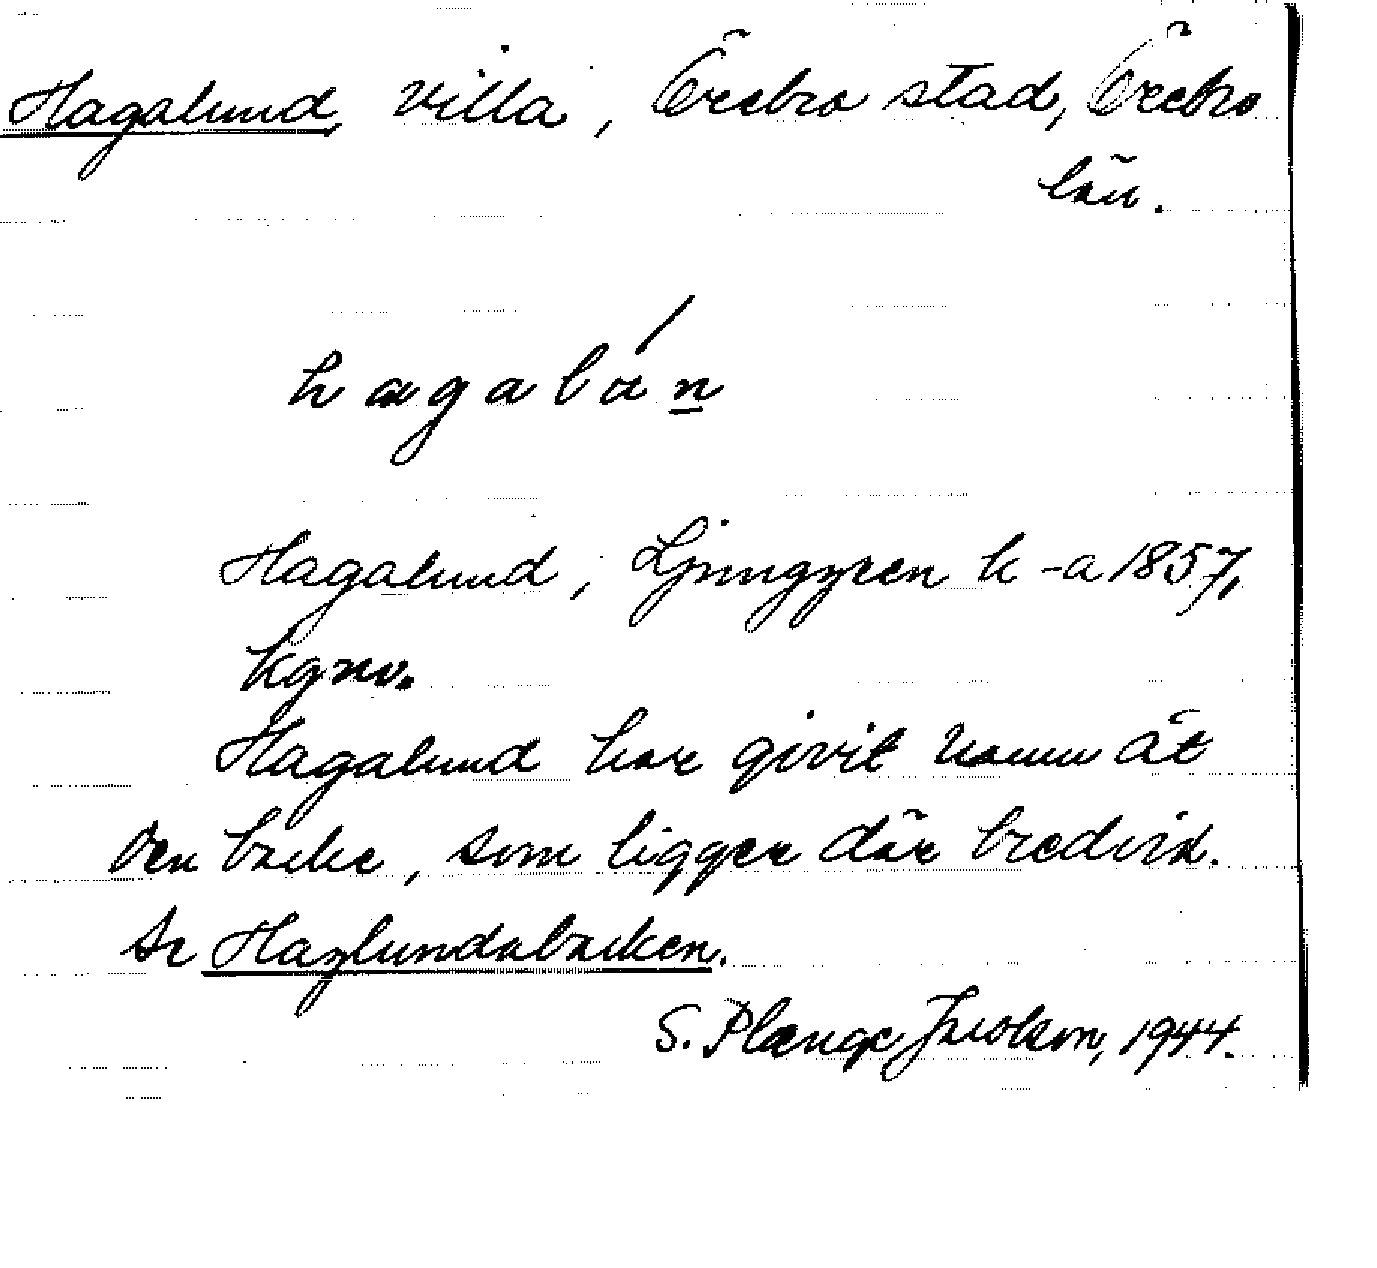 Hagalund, villa, Örebro stad, Örebro
län.
hagalán
Hagalund, Ljunggren k-a 1857,
kgnv.
Hagalund har givit namn åt
den backe, som ligger där bredvid.
Se Haglundabacken.
S. Plænge Jacobson, 1944.